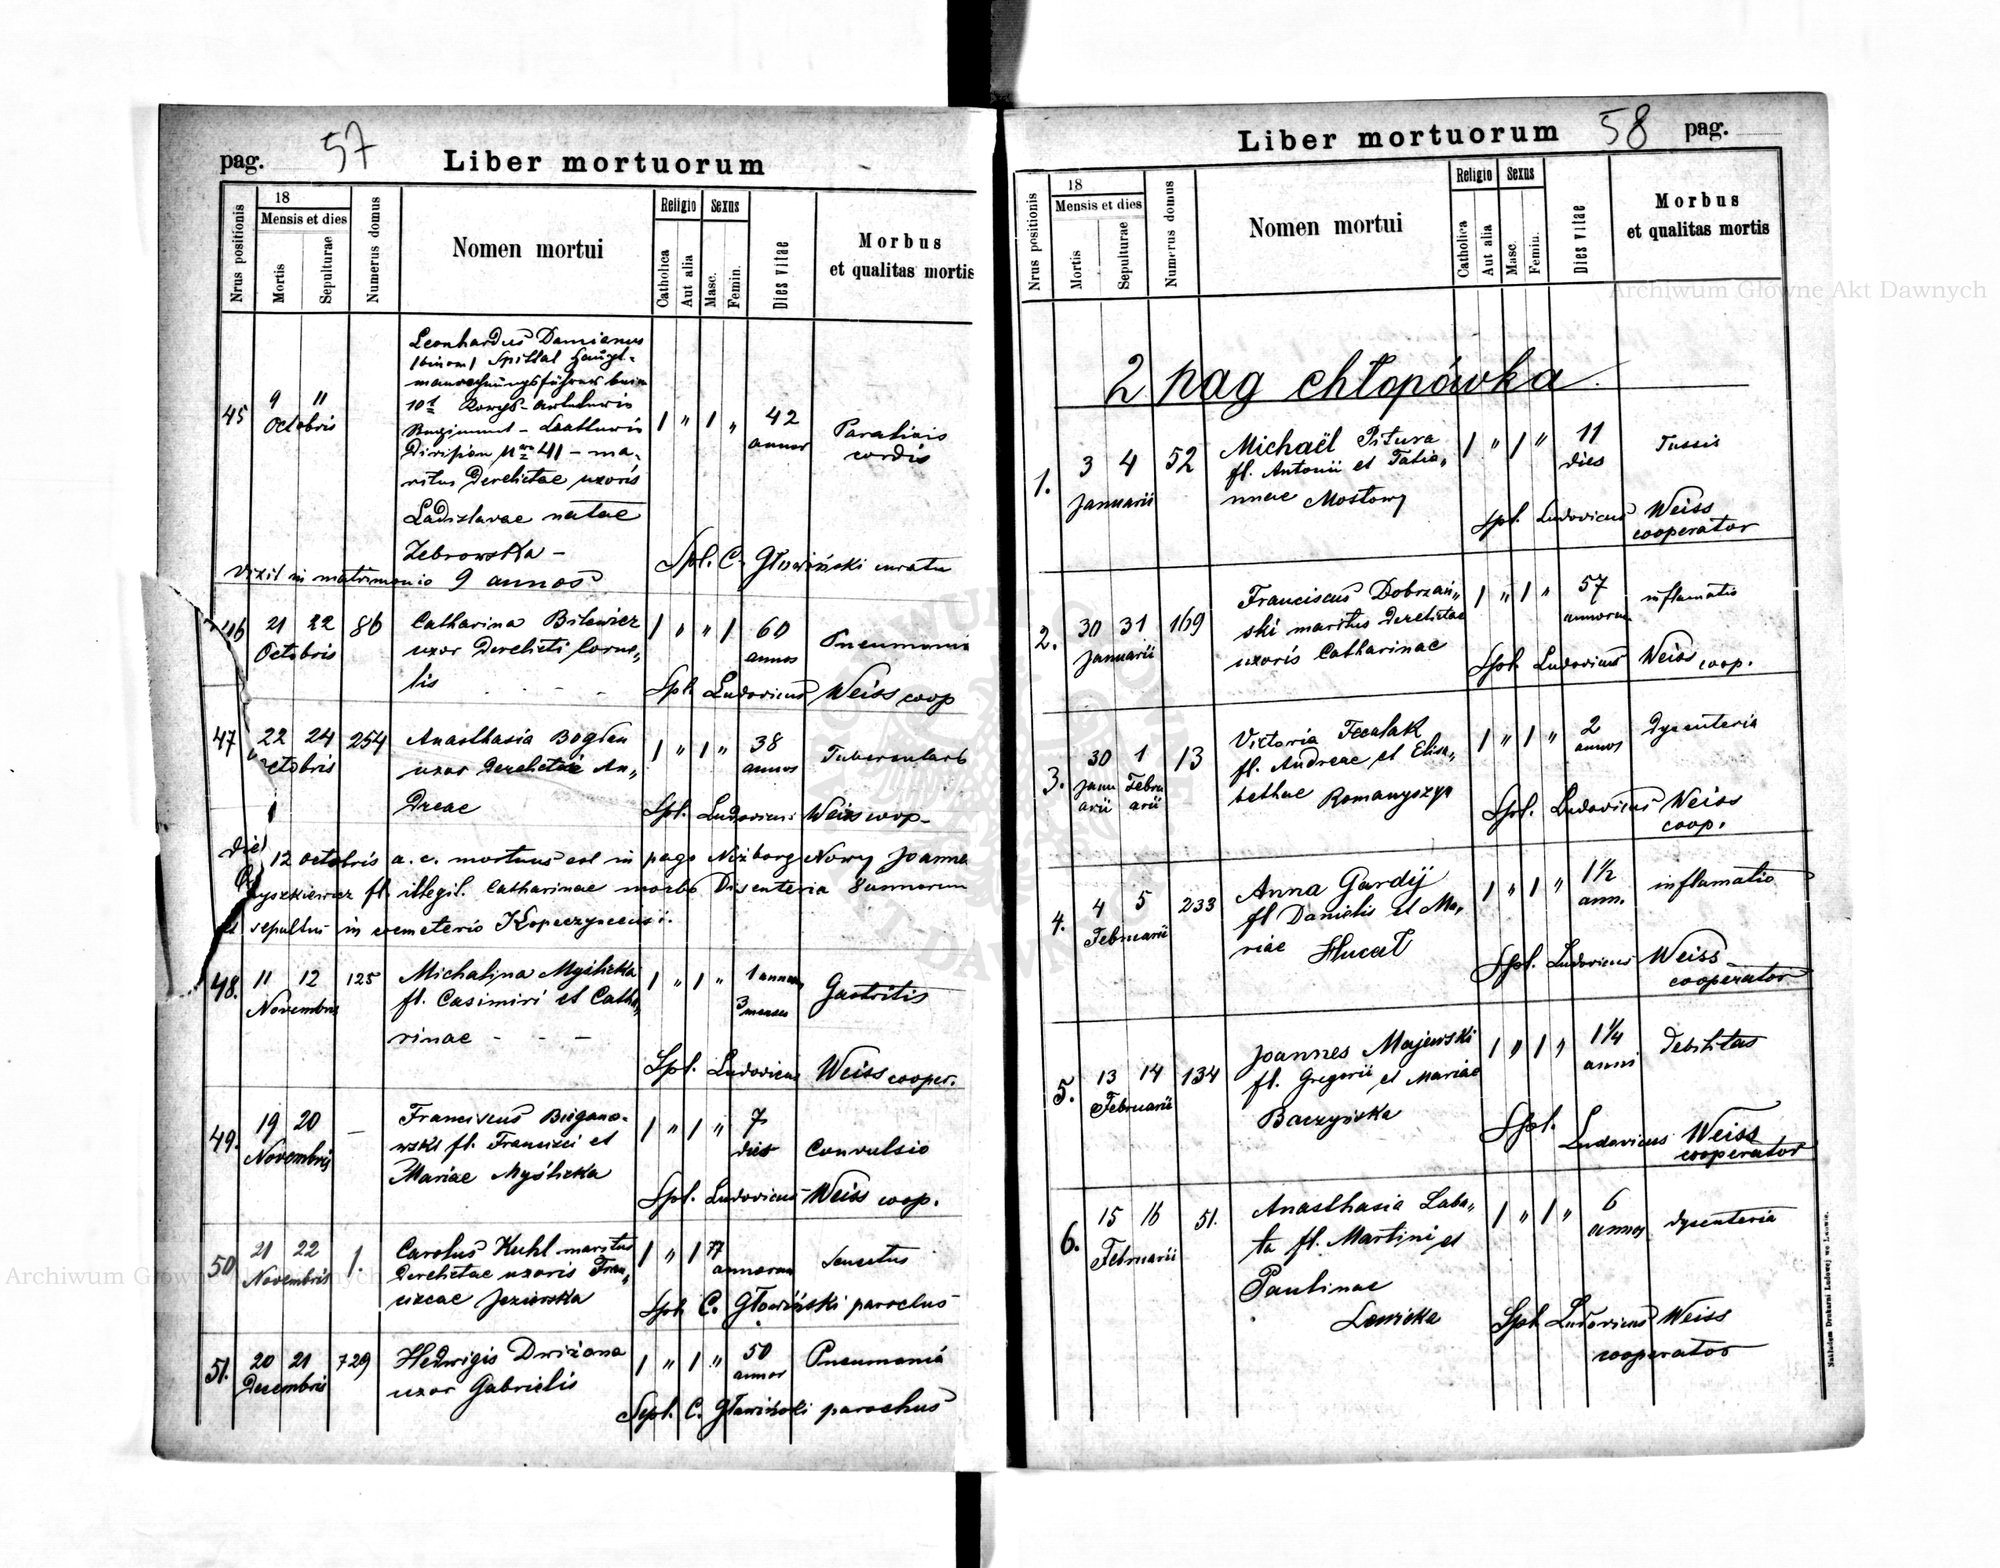 pag. 57 Liber mortuorum
Nrus positionis
18
Mensis et dies
Mortis
Sepulturae
Numerus domus
Nomen mortui
Religio
Catholica
Aut alia
Sexus
Masc.
Femin.
Dies vitae
Morbus
et qualitas mortis
45 9 11 Octobris
Leonhardus Damianus
(binom) Spittal Haupt-
mannrechnungsführer beim
10t Korps-Artillerie
Regiment - Batterie
Division Nro 41 - ma-
ritus derelictae uxoris
Ladislavae natae
Żebrowska -
vixit in matrimonio 9 annos
1 " 1 " 42 annor
Paralisis
cordis
Spl. C. Głowiński curatu
46 21 22 Octobris 86
Catharina Bilewicz
uxor derelicti Corne„
lis - -
1 " " 1 60 annos Pneumonia
Spl. Ludovicus Weiss coop
47 22 24 Octobris 254
Anasthasia Bogden
uxor derelictae An„
dreae
1 " 1 " 38 annos
Spl. Ludovicus Weiss coop-
die 12 octobris a. c. mortuus est in pago Niżborg Nowy Joanne
fl. illegil. Catharinae morbo Disenteria 8 annorum
et sepultus in cemeterio Kopeczyncensi.
48. 11 12 Novembris 125
Michalina Myślicka
fl. Casimiri et Catha„
rinae - - -
1 " 1 " 1 annum
3 menses
Gastritis
Spl. Ludovicus Weiss cooper.
49. 19 20 Novembris -
Franciscus Biegano-
wski fl. Francisci et
Mariae Myślicka
1 " 1 " 7 dies Convulsio
Spl. Ludovicus Weiss coop.
50 21 22 Novembris 1.
Carolus Kuhl maritus
derelictae uxoris Fran„
ciscae Jezierska
1 " 1 77 annorum Senectus
Spl. C. Głowiński parochus
51. 20 21 Decembris 729
Hedwigis Dwiżona
uxor Gabrielis
1 " 1 " 50 annor Pneumonia
Sepl. C. Głowiński parochus
Liber mortuorum 58 pag.
Nrus positionis
18
Mensis et dies
Mortis
Sepulturae
Numerus domus
Nomen mortui
Religio
Catholica
Aut alia
Sexus
Masc.
Femin.
Dies vitae
Morbus
et qualitas mortis
2 pag chłopówka.
1. 3 4 Januarii 52
Michaël Pitura
fl. Antonii et Tatia„
nnae Mostowy
1 " 1 " 11 dies Tussis
Spl. Ludovicus Weiss
cooperator
2. 30 31 Januarii 169
Franciscus Dobrzań„
ski maritus derelictae
uxoris Catharinae
1 " 1 " 57 annorum inflamatio
Spl. Ludovicus Weiss coop.
3. 30 Januarii 1 Februarii 13
Victoria Fecalak
fl. Andreae et Elisa„
bethae Romanyszyn
1 " 1 " 2 annos Dysenteria
Spl. Ludovicus Weiss
coop.
4. 4 5 Februarii 233
Anna Gardij
fl Danielis et Ma„
riae Hucał
1 " 1 " 1 1/2 ann. inflamatio
Spl. Ludovicus Weiss
cooperator
5. 13 14 Februarii 134
Joannes Majewski
fl. Gregorii et Mariae
Baczyńska
1 " 1 " 1 1/4 anni debilitas
Spl. Ludovicus Weiss
cooperator
6. 15 16 Februarii 51.
Anasthasia Laba„
ta fl. Martini et
Paulinae
Lewicka
1 " 1 " 6 annos dysenteria
Spl. Ludovicus Weiss
cooperator
Nakładem Drukarni Ludowej we Lwowie.
Archiwum Główne Akt Dawnych
Archiwum Główne Akt Dawnych